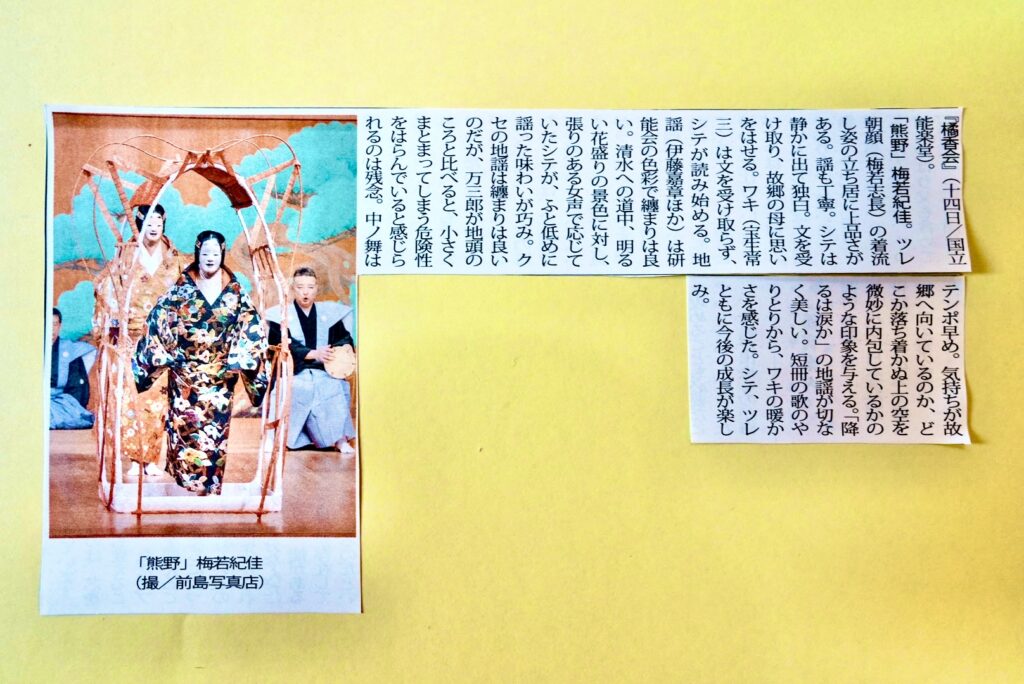 『橘香会』(十四日/国立
能楽堂)。
「熊野」梅若紀佳。ツレ
朝顔(梅若志長)の着流
し姿の立ち居に上品さが
ある。謡も丁寧。シテは
静かに出て独白。文を受
け取り、故郷の母に思い
をはせる。ワキ(宝生常
三)は文を受け取らず、
シテが読み始める。地
謡(伊藤嘉章ほか)は研
能会の色彩で纏まりは良
い。清水への道中、明る
い花盛りの景色に対し、
張りのある女声で応じて
いたシテが、ふと低めに
謡った味わいが巧み。ク
セの地謡は纏まりは良い
のだが、万三郎が地頭の
ころと比べると、小さく
まとまってしまう危険性
をはらんでいると感じら
れるのは残念。中ノ舞は
テンポ早め。気持ちが故
郷へ向いているのか、ど
こか落ち着かぬ上の空を
微妙に内包しているかの
ような印象を与える。「降
るは涙か」の地謡が切な
く美しい。短冊の歌のや
りとりから、ワキの暖か
さを感じた。シテ、ツレ
ともに今後の成長が楽し
み。
「熊野」梅若紀佳
(撮/前島写真店)